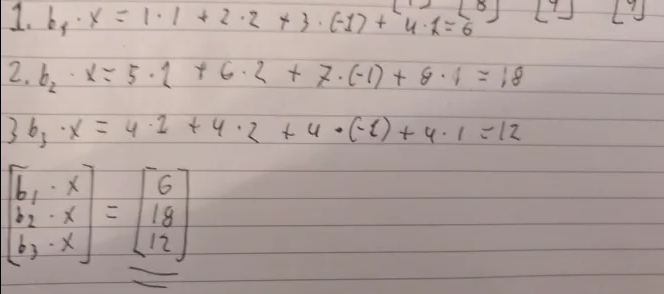 [1] [8] [4] [9]
1. b₁ · x = 1·1 + 2·2 + 3·(-1) + 4·1 = 6
2. b₂ · x = 5·1 + 6·2 + 7·(-1) + 8·1 = 18
3 b₃ · x = 4·1 + 4·2 + 4·(-1) + 4·1 = 12
[b₁ · x] [6]
[b₂ · x] = [18]
[b₃ · x] [12]